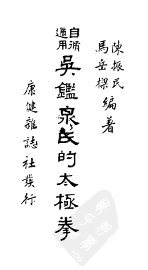 陳振民
馬岳樑
編著
自衛
適用
吳鑑泉氏的太極拳
康健雜誌社發行